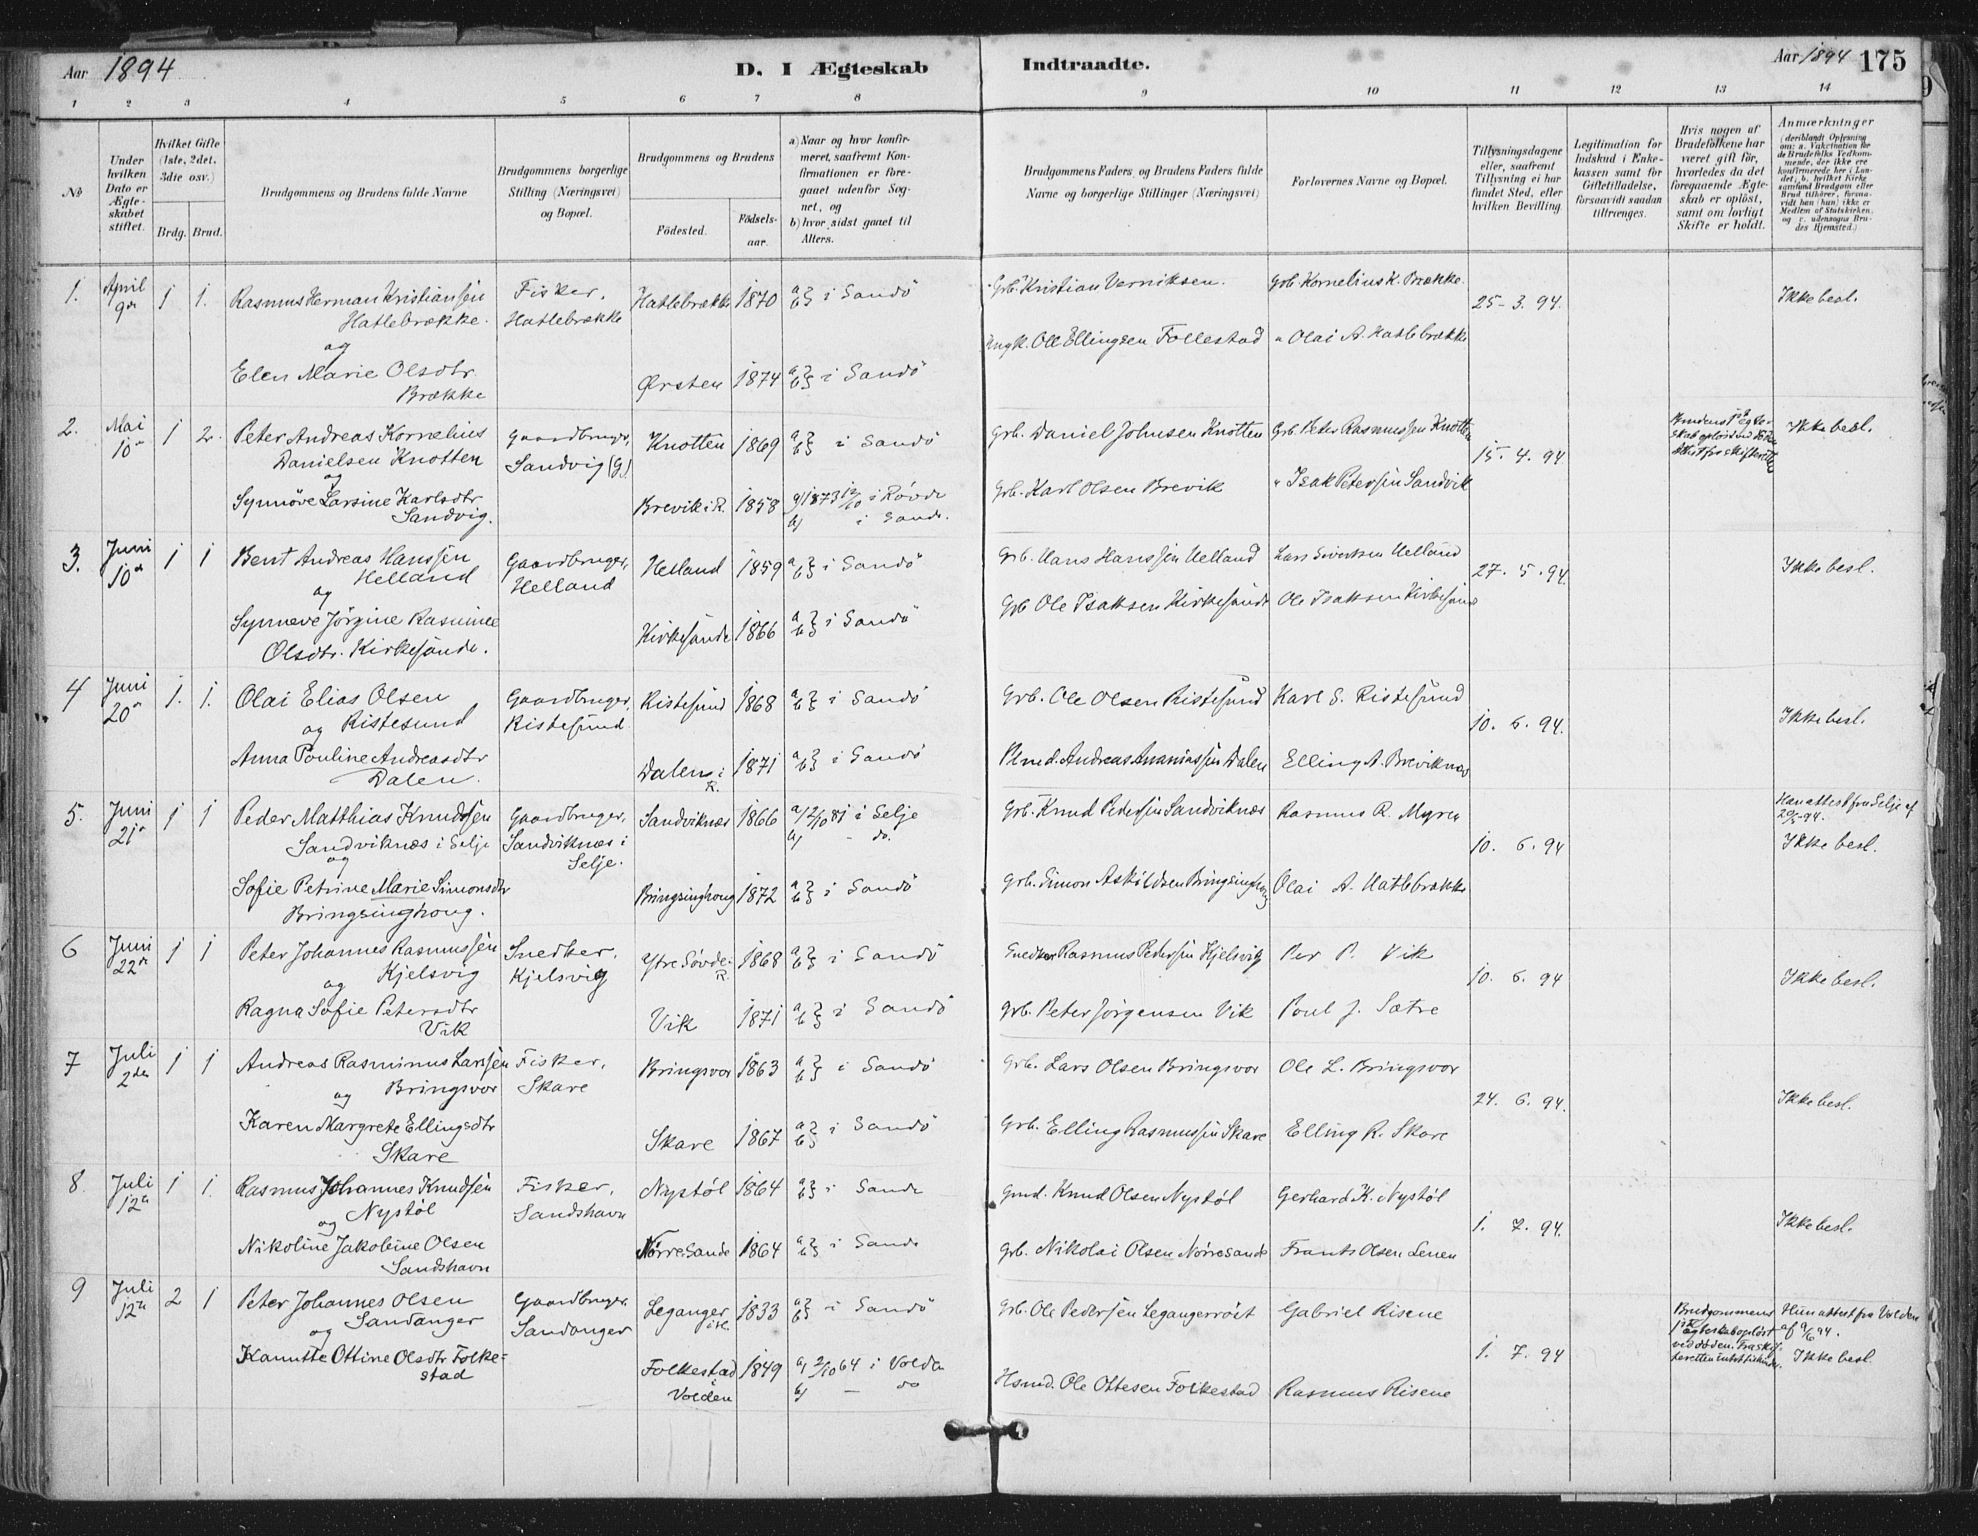 Aar 1894 D. I Ægteskab Indtraadte. Aar 1894 175
1 2 3 4 5 6 7 8 9 10 11 12 13 14
No
Under hvilken Dato er Ægteskabet stiftet.
Hvilket Gifte (1ste, 2det, 3die osv.)
Brdg. Brud.
Brudgommens og Brudens fulde Navne
Brudgommens borgerlige Stilling (Næringsvei) og Bopæl.
Brudgommens og Brudens
Födested. Födsels-aar.
a) Naar og hvor konfirmeret, saafremt Konfirmationen er foregaaet udenfor Sognet, og
b) hvor sidst gaaet til Alters.
Brudgommens Faders, og Brudens Faders fulde Navne og borgerlige Stillinger (Næringsvei)
Forlovernes Navne og Bopæl.
Tillysningsdagene eller, saafremt Tillysning ei har fundet Sted, efter hvilken Bevilling.
Legitimation for Indskud i Enkekassen samt for Giftetilladelse, forsaavidt saadan tiltrænges.
Hvis nogen af Brudefolkene har været gift før, hvorledes da det foregaaende Ægteskab er opløst, samt om lovligt Skifte er holdt.
Anmærkninger (deriblandt Oplysning om: a. Vakcination for de Brudefolks Vedkommende, der ikke ere konfirmerede her i Landet; b. hvilket Kirkesamfund Brudgom eller Brud tilhører, forsaavidt han (hun) ikke er Medlem af Statskirken, og c. udensogns Brudes Hjemsted.)
1. April 9de 1 1. Rasmus Herman Kristianssen Fisker, Hatlebrække 1870 a/b} i Sandö Grb. Kristian Verniksen. Grb. Kornelius K. Brække 25-3. 94. Ikke besl.
Hatlebrække. Hatlebrække
og
Elen Marie Olsdtr. Ørsten 1874 a/b} i Sandö Ungk. Ole Ellingsen Follestad " Olai A. Hatlebrække
Brække
2. Mai 10de 1 2. Peter Andreas Kornelius Gaardbruger, Knotten 1869 a/b} i Sandö Grb. Daniel Johnsen Knotten Grb. Peter Rasmussen Knotten 15. 4. 94 Brudens 1ste Ægteskab opløst ved Døden Attest fra skifteretten Ikke besl.
Danielsen Knotten Sandvig (G.)
og
Synnöve Larsine Karlsdtr Brevik i R. 1858 a) 1873 12/10 i Rövde Grb. Karl Olsen Brevik " Isak Peterssen Sandvik
Sandvig. b) i Sande.
3. Juni 10de 1 1 Bent Andreas Hanssen Gaardbruger, Helland 1859 a/b} i Sandö Grb. Hans Hanssen Helland Lars Sivertsen Helland 27. 5. 94. Ikke besl.
Helland Helland
og
Synneve Jörgine Rasmine Kirkesunde 1866 a/b} i Sandö Grb Ole Isaksen Kirkesunde Ole Isaksen Kirkesunde
Olsdtr. Kirkesunde.
4 Juni 20de 1. 1. Olai Elias Olsen Gaardbruger, Ristesund 1868 a/b} i Sandö Grb. Ole Olsen Ristesund Karl S. Ristesund 10. 6. 94. Ikke besl.
og Ristesund Ristesund.
Anna Pouline Andreasdtr Dalen i R. 1871 a/b} i Sandö Plmd. Andreas Ananiassen Dalen Elling A. Breviknæs
Dalen.
5. Juni 21de 1 1 Peder Matthias Knudssen Gaardbruger, Sandviknæs 1866 a/ 2/10 81 i Selje Grb. Knud Pederssen Sandviknæs Rasmus R. Myren 10. 6. 94 Han attest fra Selje af 20/5-94.
Sandviknæs i Selje Sandviknæs i Selje. b/ - do. Ikke besl.
og
Sofie Petrine Marie Simonsdtr Bringsinghoug 1872 a/b} i Sandö Grb. Simon Askildsen Bringsinghoug Olai A. Hatlebrække
Bringsinghoug.
6 Juni 22de 1 1 Peter Johannes Rasmussen Snedker, Ytre Søvde i R. 1868 a/b} i Sandö Snedker Rasmus Pederssen Kjelsvig Per P. Vik 10. 6. 94 Ikke besl.
Kjelsvig Kjelsvig
og
Ragna Sofie Petersdtr Vik 1871 a/b} i Sandö Grb. Peter Jörgensen Vik Poul J. Sætre
Vik
7 Juli 2den 1 1 Andreas Rasminus Larssen Fisker, Bringsvor 1863 a/b} i Sandö Grb. Lars Olsen Bringsvor Ole L. Bringsvor 24. 6. 94. Ikke besl.
og Bringsvor Skare
Karen Margrete Ellingsdtr Skare 1867 a/b} i Sandö Grb. Elling Rasmussen Skare Elling R. Skare
Skare
8. Juli 12te 1 1. Rasmus Johannes Knudssen Fisker, Nystöl 1864 a/b} i Sande Gmd. Knud Olsen Nystöl Gerhard K. Nystöl 1. 7. 94. Ikke besl.
og Nystöl Sandshavn
Nikoline Jakobine Olsen Nörre Sande 1864 a/b} i Sande Grb. Nikolai Olsen Nörresande Frants Olsen Lenen
Sandshavn
9 Juli 12te 2 1 Peter Johannes Olsen Gaardbruger, Leganger 1833 a/b} i Sandö Grb. Ole Pederssen Legangerröst Gabriel Risene 1. 7. 94 Brudgommens 1ste Ægteskab opløst ved døden. Hun attest fra Volden af 9/6 94.
og Sandanger Sandanger Ikke besl.
Kanutte Ottine Olsdtr Folke- Folkestad i Volden 1849 a/ 2/10 64 i Volden Hsmd. Ole Ottesen Folkestad Rasmus Risene
stad b/ - do